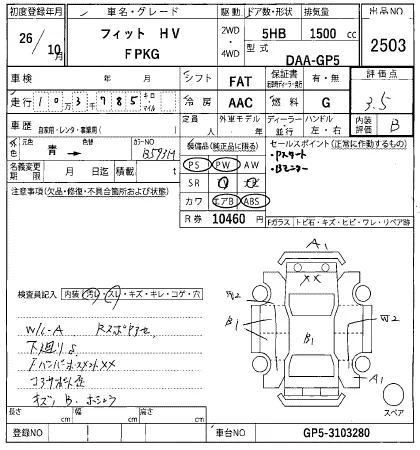 初度登録年月 車名・グレード 駆動 ドア数・形状 排気量 出品NO
26/10月 フィット HV 2WD・4WD 5HB 1500 cc 2503
FPKG 型式 DAA-GP5
車検 年 月 シフト FAT 保証書 有・無 評価点
走行 103785 キロ・マイル 冷房 AAC 燃料 G 3.5
車歴 自家用・レンタ・事業用( ) 定員 人 外車モデル 年 ディーラー・並行 ハンドル 左・右 内装評価 B
外色 元色 青→ 色替 カラーNO B593M 装備品(純正品に限る) セールスポイント(正常に作動するもの)
PS PW AW ・Pスタート
名義変更期限 月 日迄 積載 t SR ナビ TV ・Bモニター
注意事項(欠品・修復・不具合箇所および状態) カワ エアB ABS
R券 10460 円 Fガラス トビ石・キズ・ヒビ・ワレ・リペア跡
A1
XX
検査員記入 内装(汚レ・スレ・キズ・キレ・コゲ・穴
B1
B1
A1
W/L-A
下廻りS
キズ、B、
スペア
長さ cm 幅 cm 高さ cm
登録NO 車台NO GP5-3103280